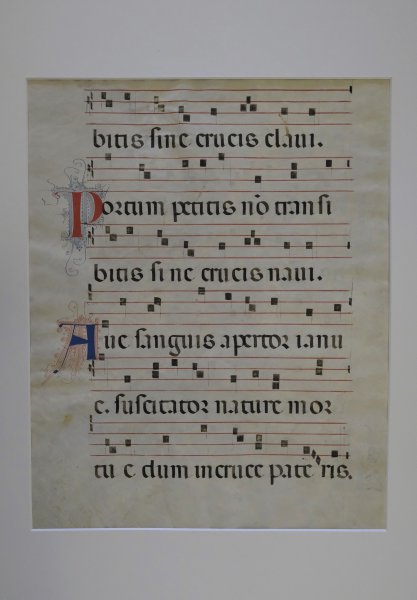 bitis sine crucis claui.
Portum petitis nō transi
bitis si ne crucis naui.
Aue sanguis apertor ianu
e. suscitator nature mor
tu e dum in cruce pate ris.